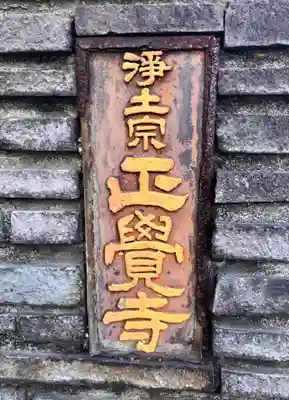 淨土宗正覺寺